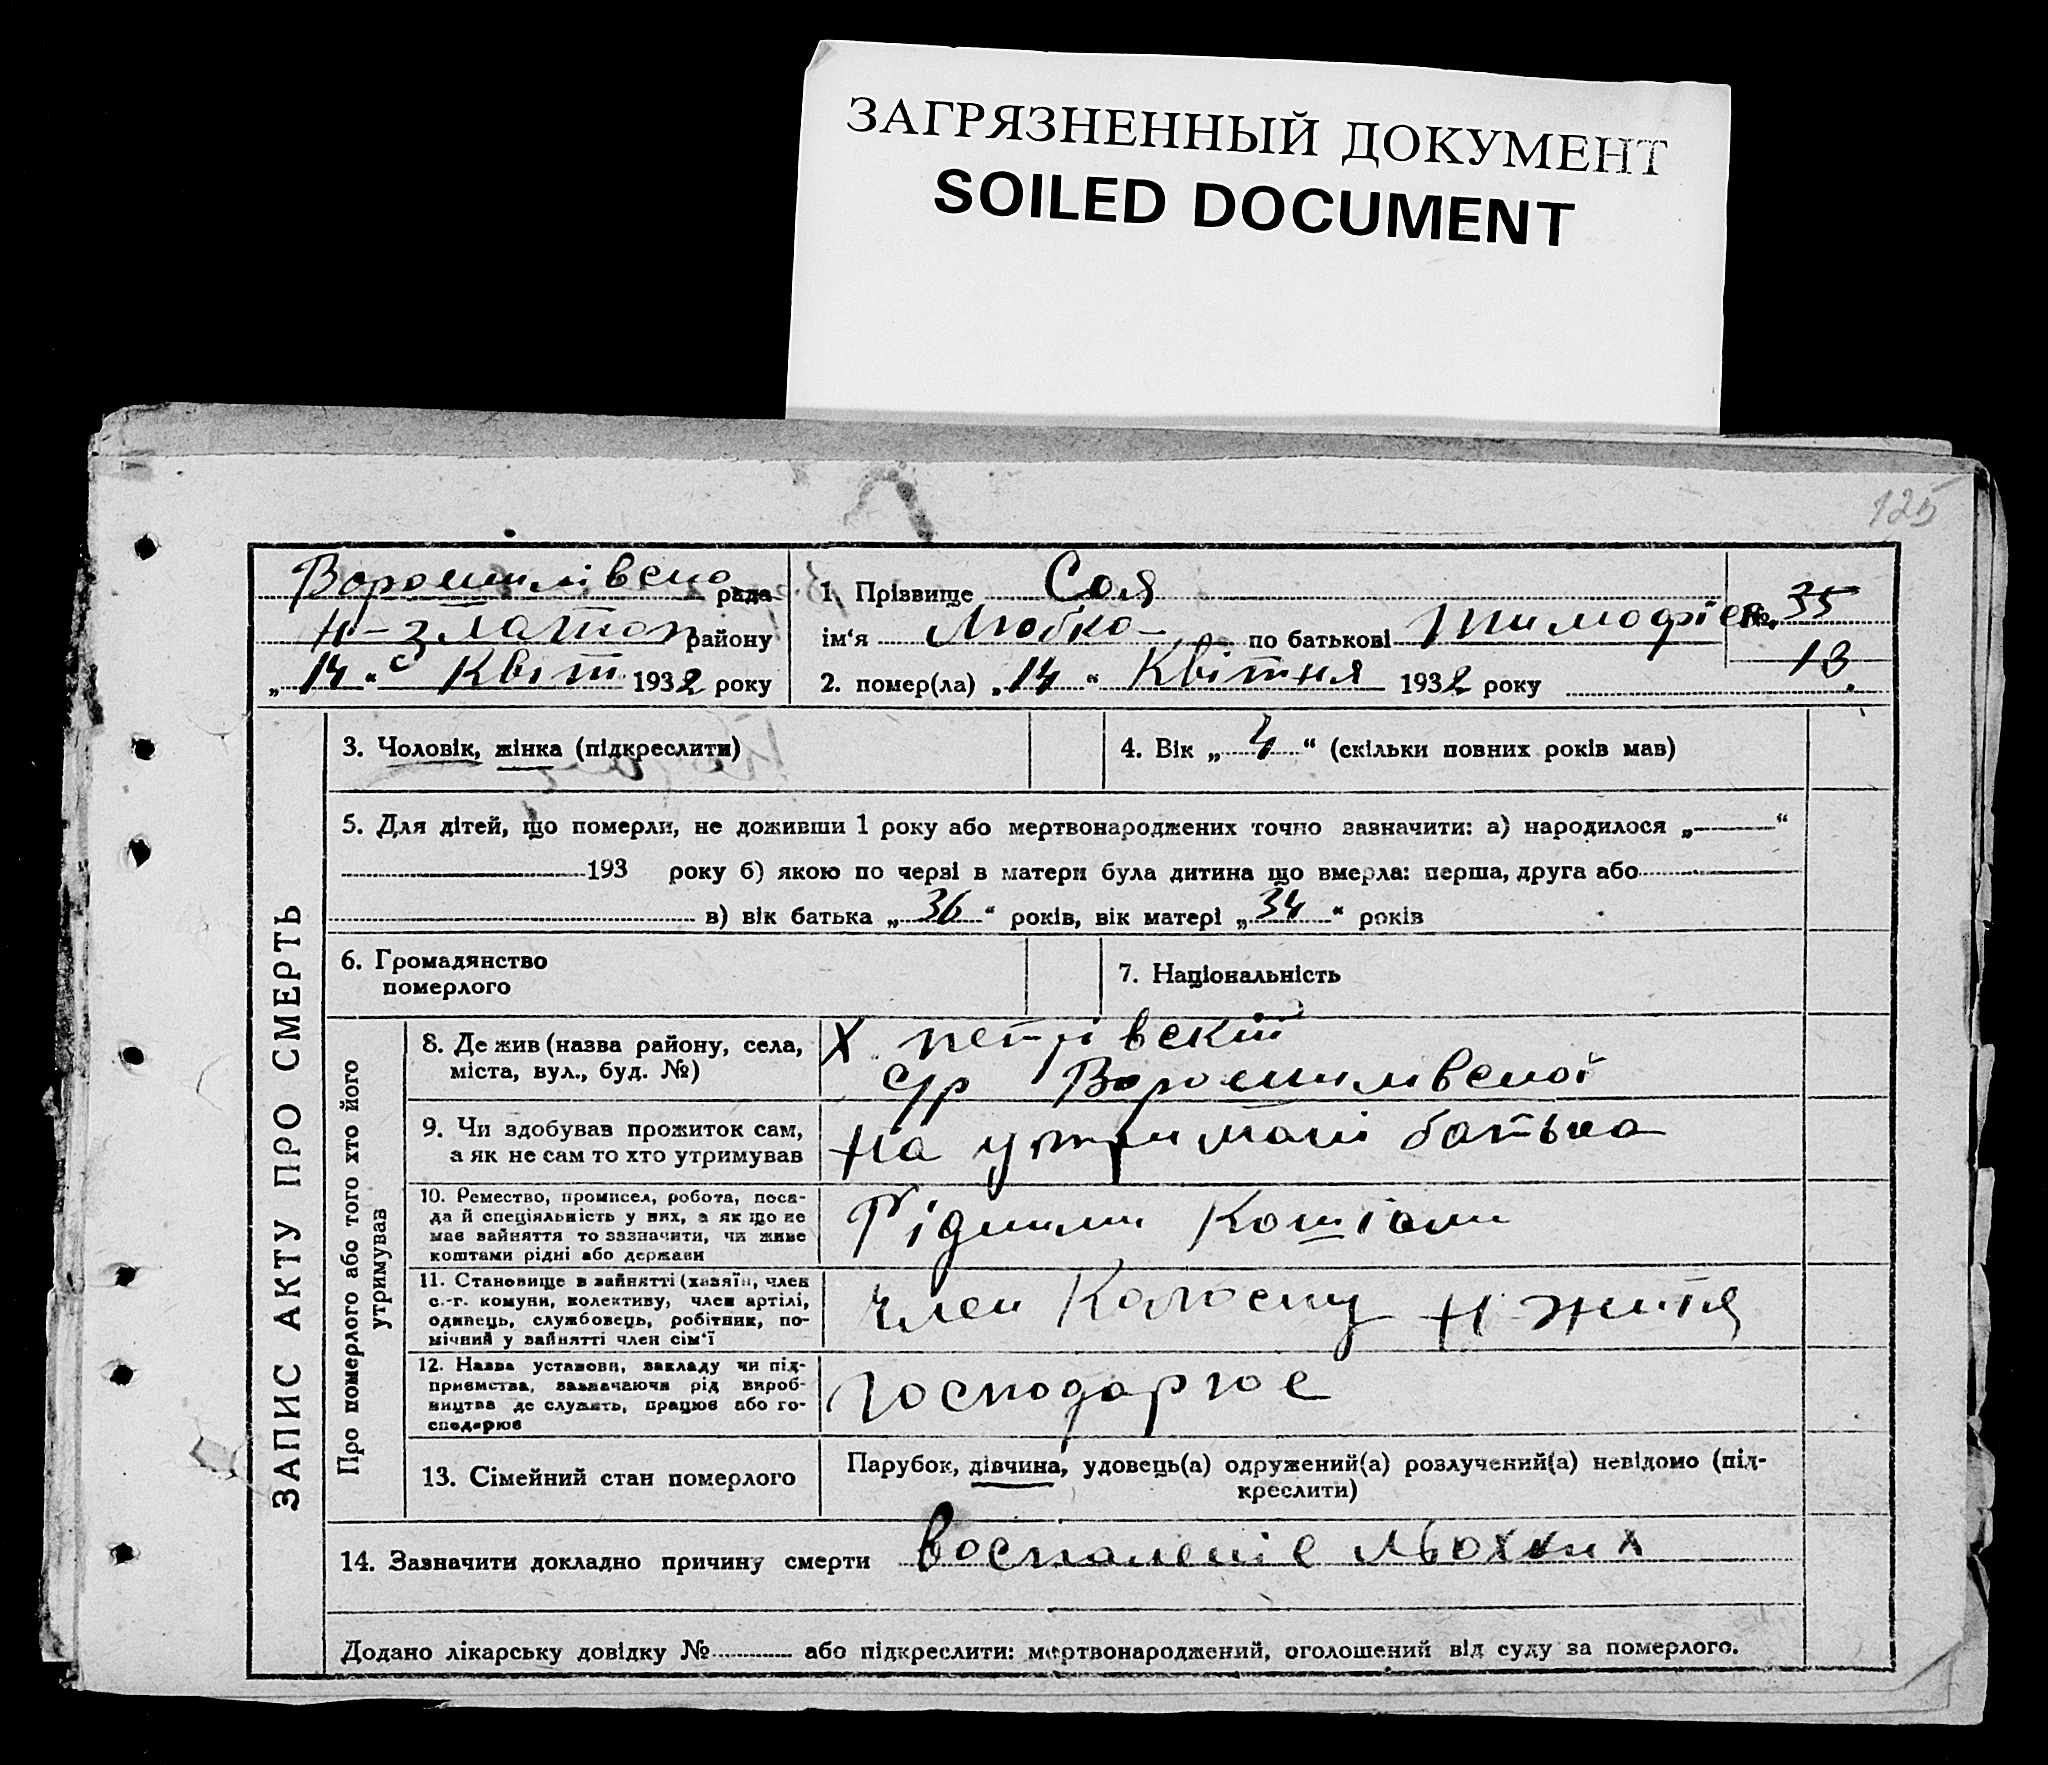 ЗАГРЯЗНЕННЫЙ ДОКУМЕНТ
SOILED DOCUMENT
125
Ворошилівсно рада
Н-златоп району
„14“ Квітн 1932 року
1. Прізвище Соя
ім‘я Любка по батькові Тимофієв
№ 35
13.
2. помер(ла) „14“ Квітня 1932 року
ЗАПИС АКТУ ПРО СМЕРТЬ
3. Чоловік, жінка (підкреслити)
4. Вік „4“ (скільки повних років мав)
5. Для дітей, що померли, не доживши 1 року або мертвонароджених точно зазначити: а) народилося „—“
193 року б) якою по черзі в матери була дитина що вмерла: перша, друга або
в) вік батька „36“ років, вік матері „34“ років
6. Громадянство
померлого
7. Національність
Про померлого або того хто його
утримував
8. Де жив (назва району, села,
міста, вул., буд. №)
Х петрівскій
с/р Ворошилівсної
9. Чи здобував прожиток сам,
а як не сам то хто утримував
На утримані батька
10. Ремество, промисел, робота, поса-
да й спеціяльність у них, а як що не
має зайняття то зазначити, чи живе
коштами рідні або держави
Рідними Коштами
11. Становище в зайнятті (хазяїн, член
с.-г. комуни, колективу, член артілі,
одинець, службовець, робітник, по-
мічний у зайнятті член сім‘ї
Член Колгоспу Н житя
12. Назва установи, закладу чи під-
приємства, зазначаючи рід вироб-
ництва де служить, працює або го-
сподарює
господарює
13. Сімейний стан померлого
Парубок, дівчина, удовець(а) одружений(а) розлучений(а) невідомо (під-
креслити)
14. Зазначити докладно причину смерти воспаленіе льохких
Додано лікарську довідку № або підкреслити: мертвонароджений, оголошений від суду за померлого.